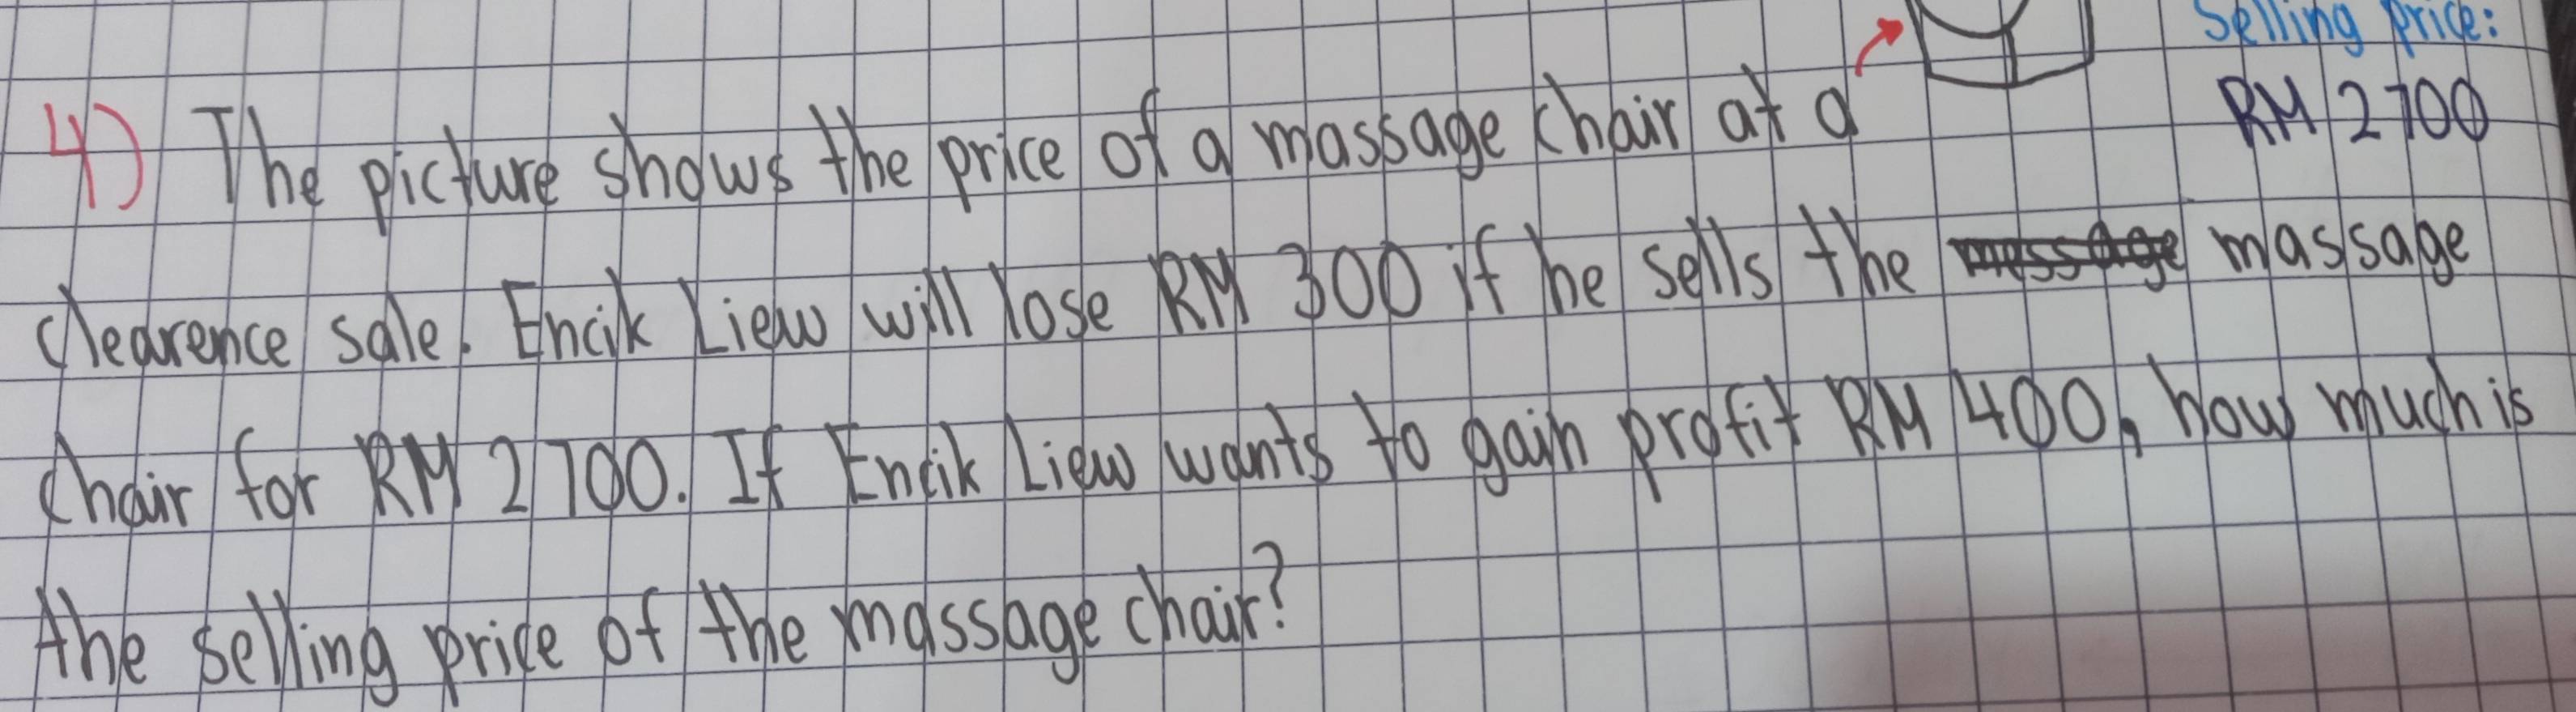 Selling price:
RM 2700
4) The picture shows the price of a massage chair at a
clearence sale. Encik Liew will lose RM 300 if he sells the massage
chair for RM 2700. If Encik Liew wants to gain profit RM 400, how much is
the selling price of the massage chair?